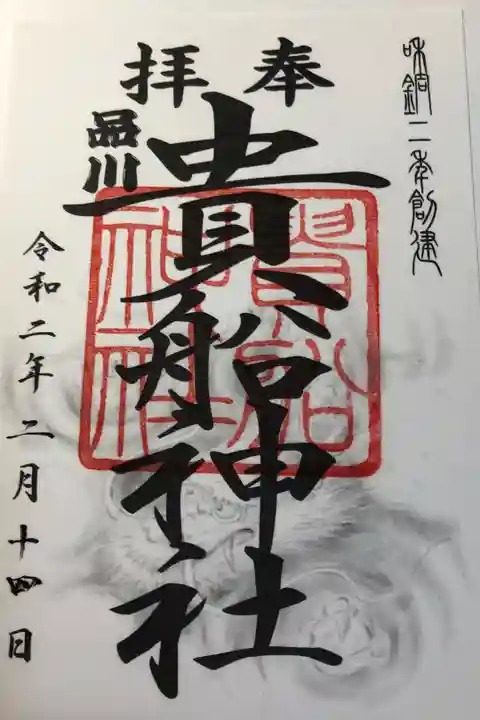 味銅二年創建
奉拝
品川
貴船神社
貴船神社
令和二年二月十四日